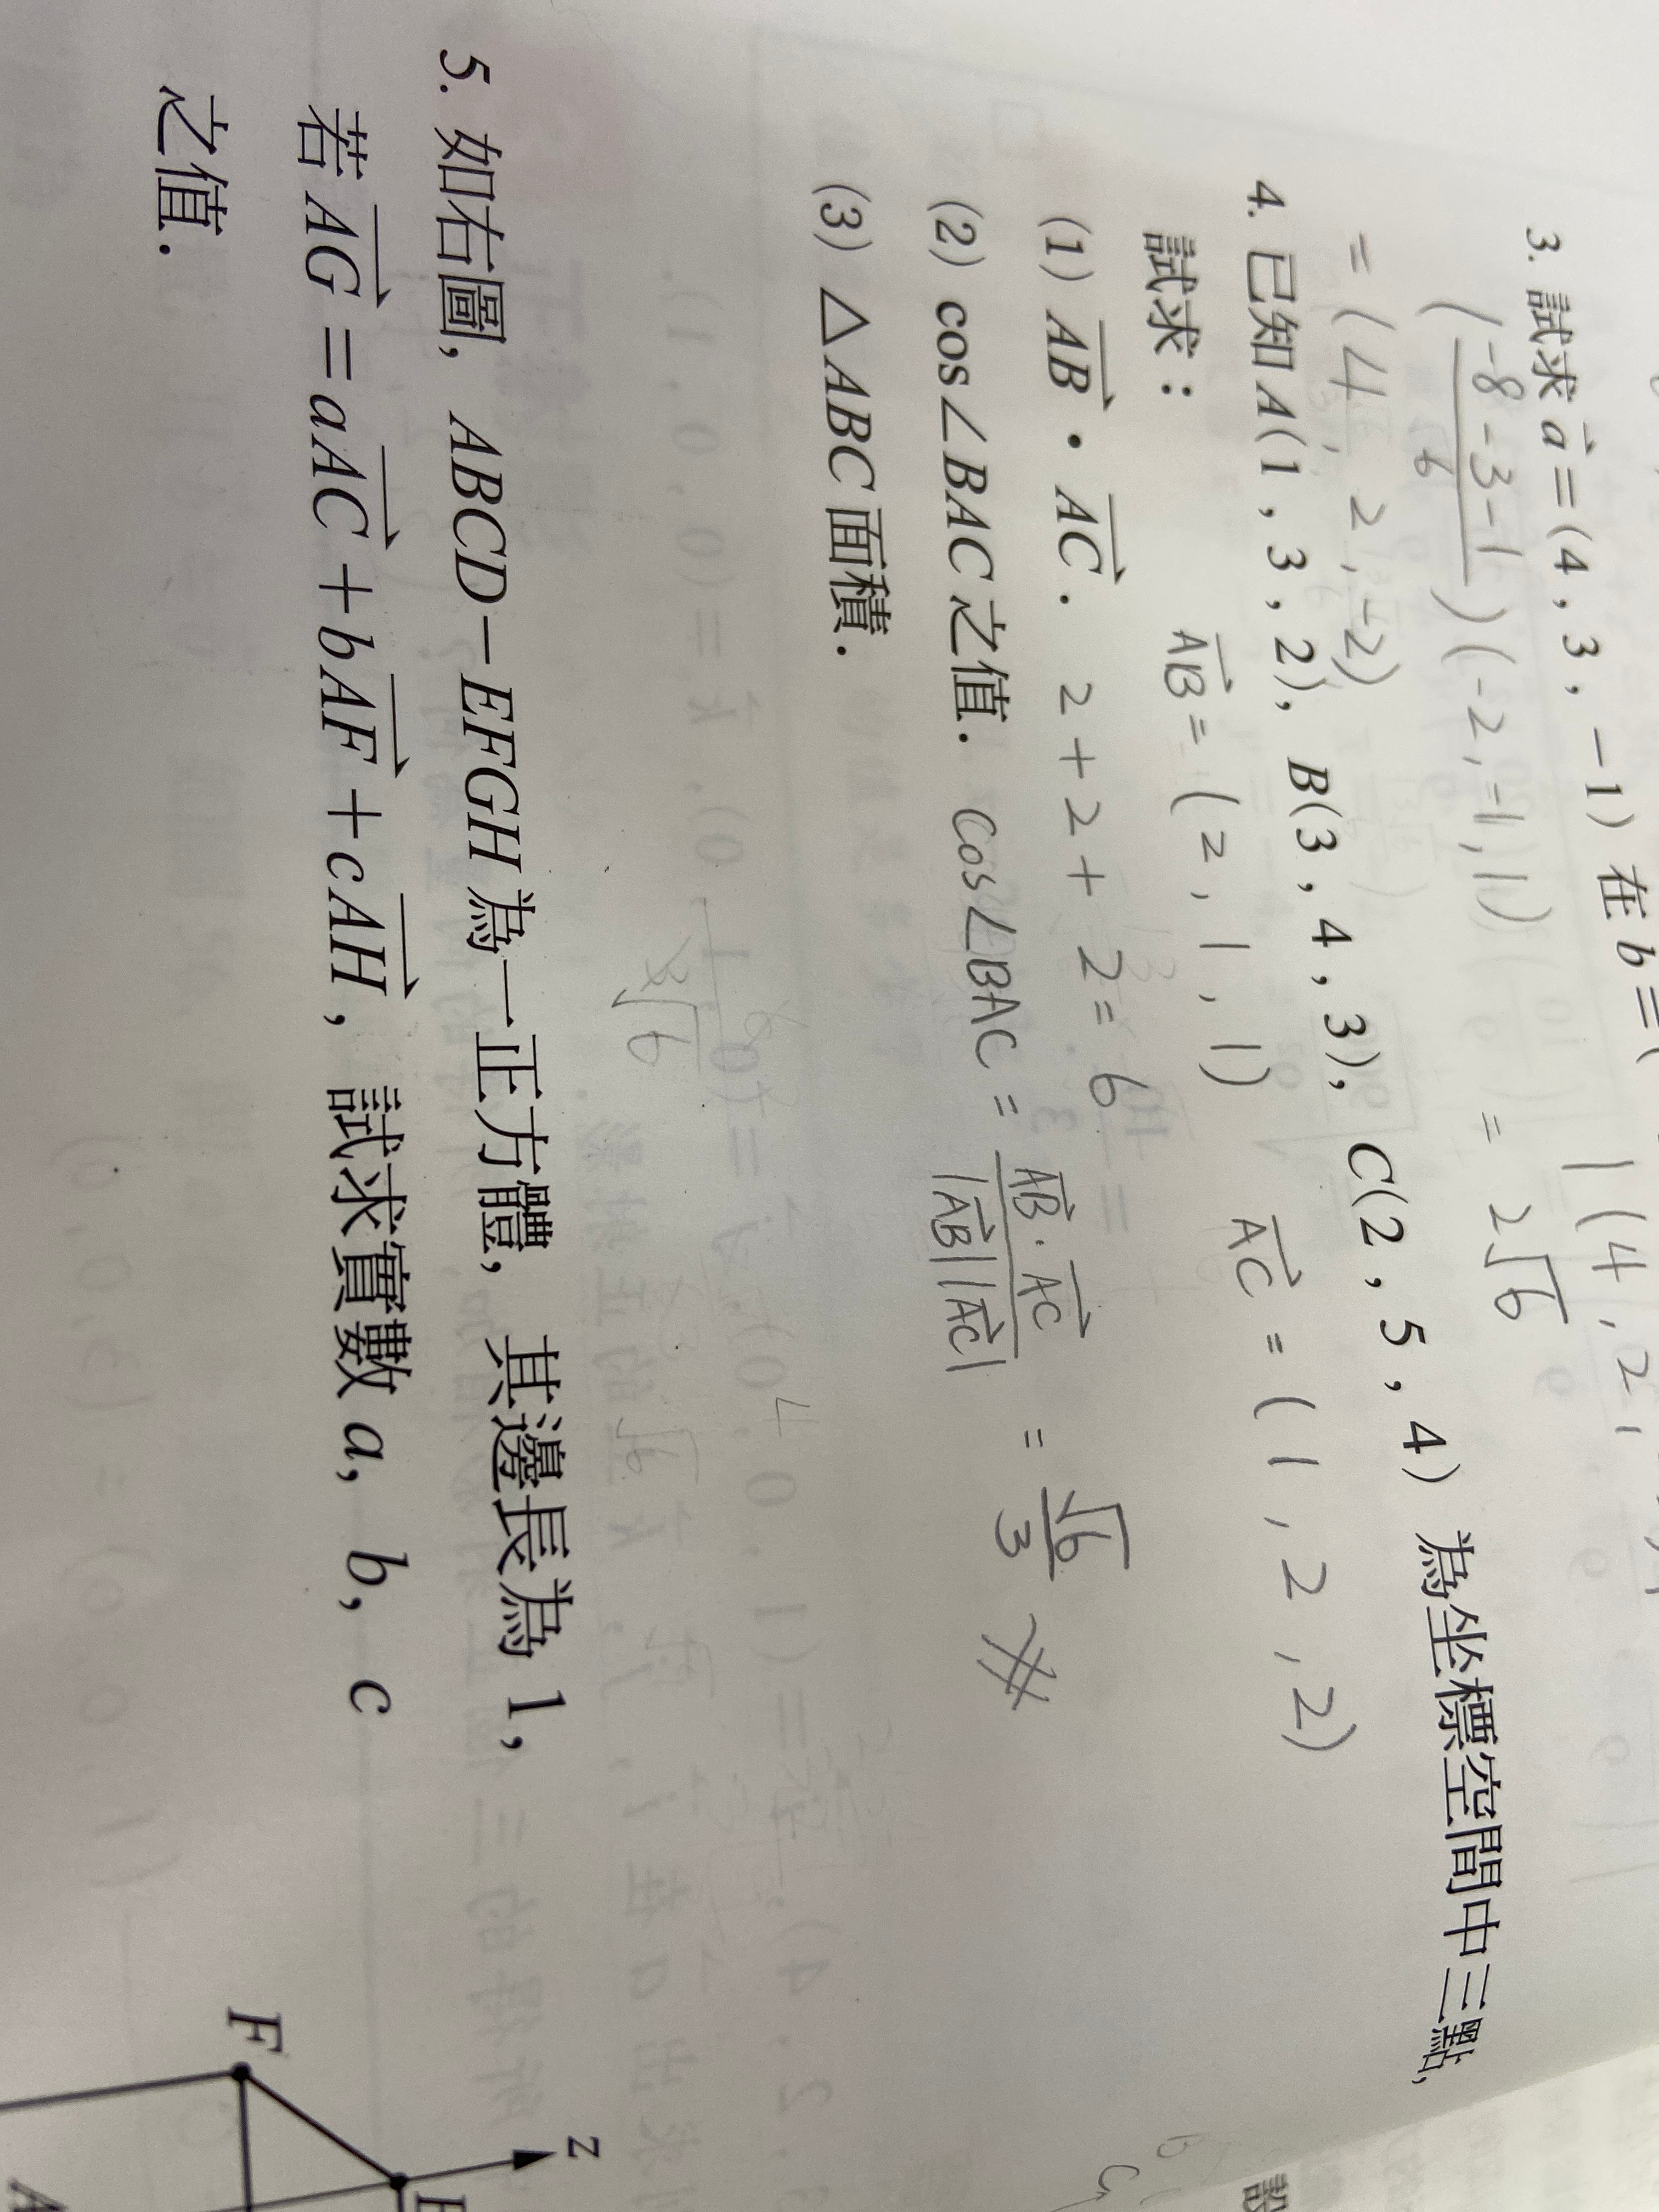 3. 試求 a = (4 , 3 , −1) 在 b = (
| (4 , 2 ,
(-8-3-1 / 6) (-2, -1, 1)
= 2√6
= (4, 2, -2)
4. 已知 A(1 , 3 , 2), B(3 , 4 , 3), C(2 , 5 , 4) 為坐標空間中三點,
試求：
AB = (2, 1, 1) AC = (1, 2, 2)
(1) AB · AC. 2+2+2=6
(2) cos∠BAC 之值. cos∠BAC = AB·AC / |AB||AC| = √6 / 3
(3) △ABC 面積.
5. 如右圖, ABCD−EFGH 為一正方體, 其邊長為 1,
若 AG = aAC + bAF + cAH, 試求實數 a, b, c
之值.
z
F